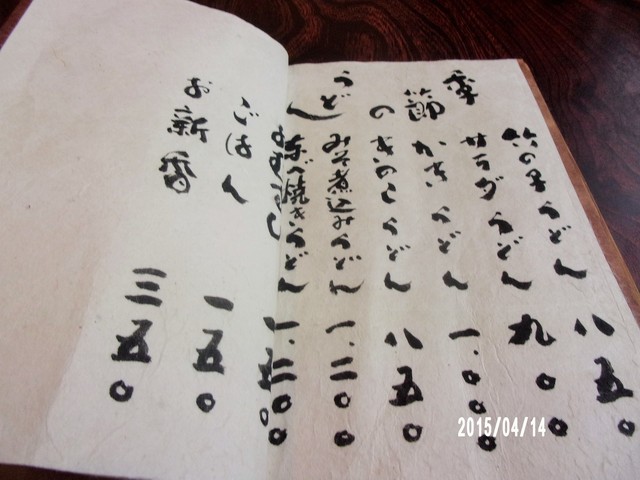 季節のうどん
竹の子うどん 八五〇
サラダうどん 九〇〇
かきうどん 一.〇〇〇
きのこうどん 八五〇
みそ煮込みうどん 一.二〇〇
なべ焼きうどん 一.二〇〇
ごはん 一五〇
お新香 三五〇
2015/04/14